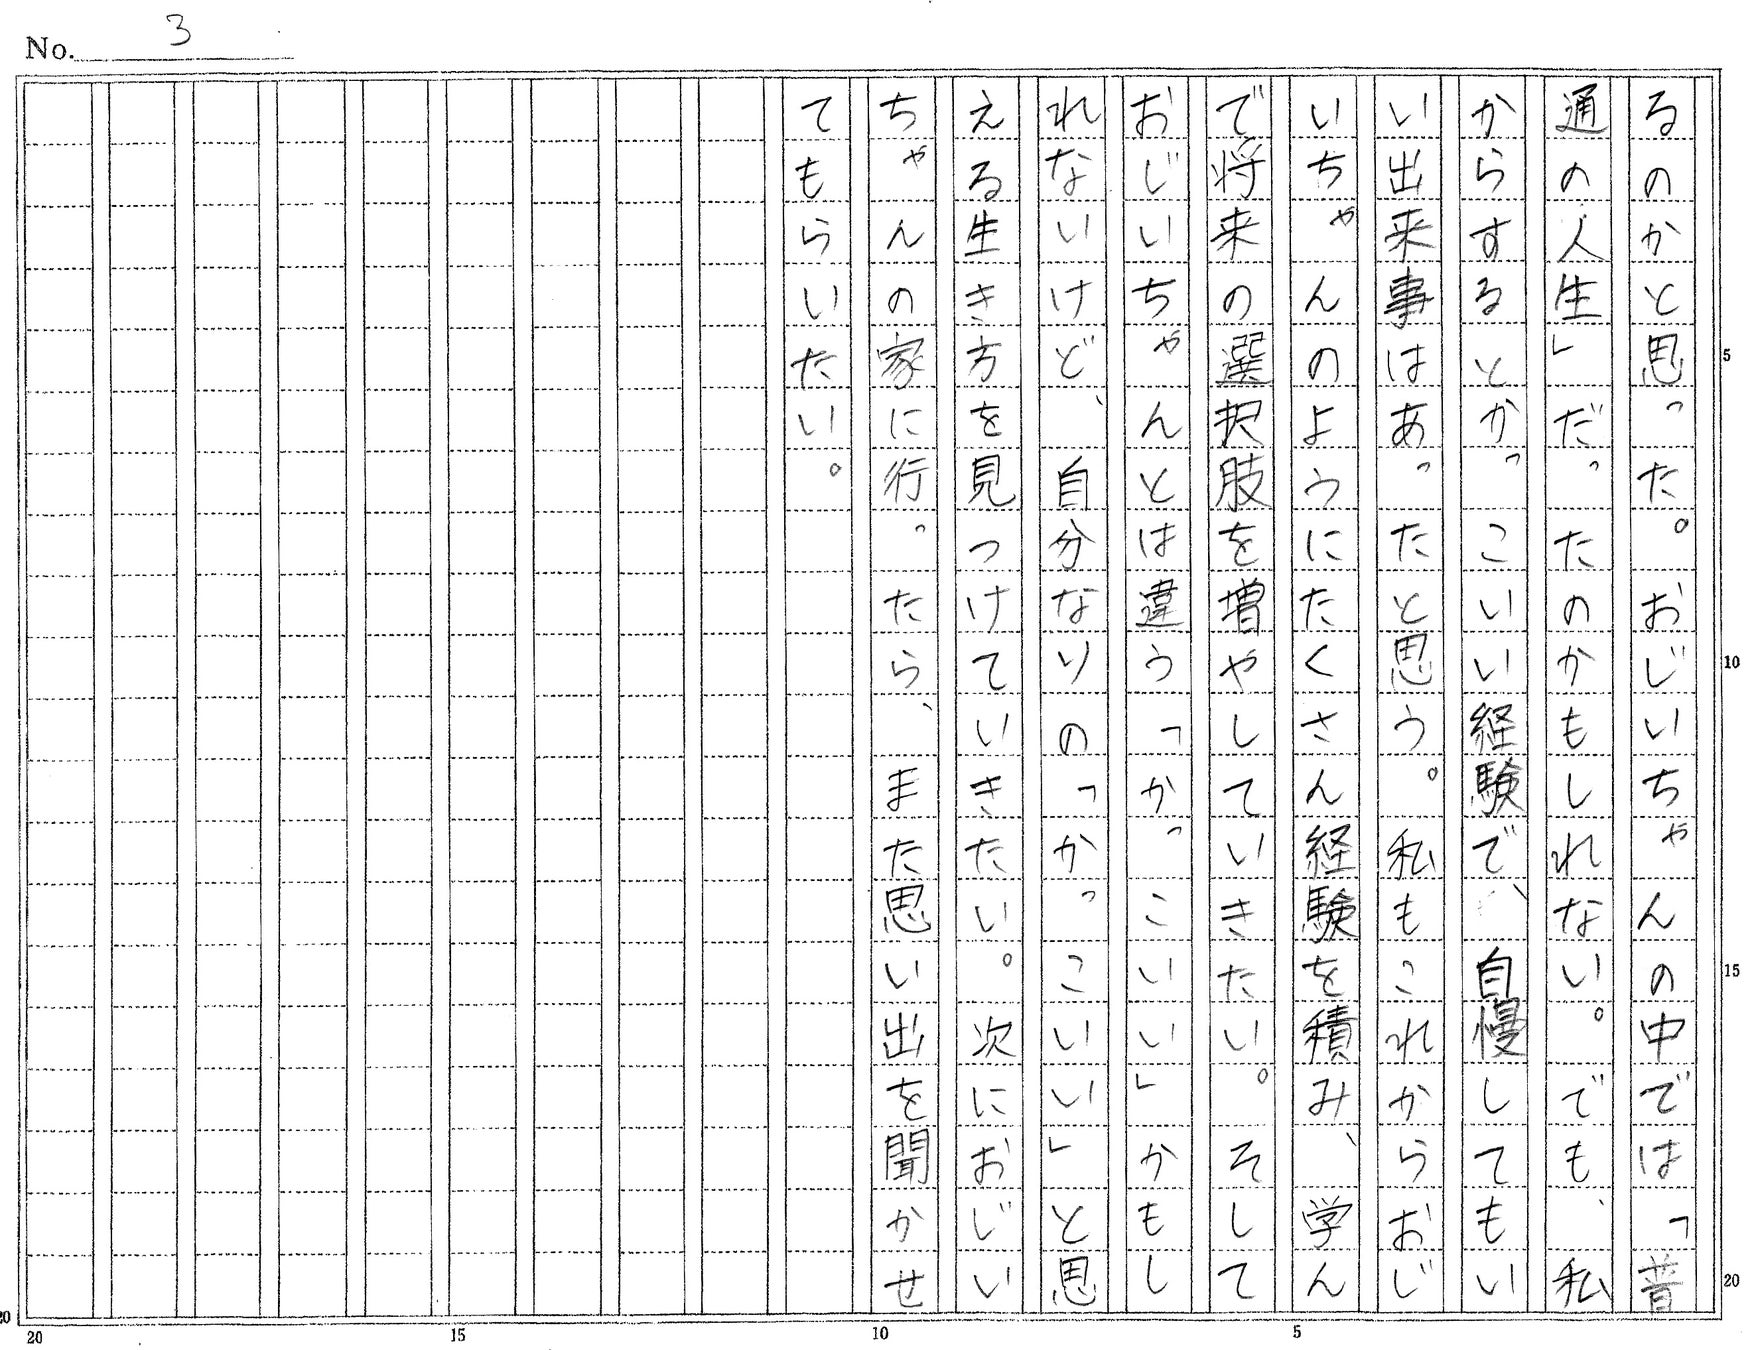 No. 3
るのかと思った。おじいちゃんの中では「普
通の人生」だったのかもしれない。でも、私
からするとかっこいい経験で、自慢してもい
い出来事はあったと思う。私もこれからおじ
いちゃんのようにたくさん経験を積み、学ん
で将来の選択肢を増やしていきたい。そして
おじいちゃんとは違う「かっこいい」かもし
れないけど、自分なりの「かっこいい」と思
える生き方を見つけていきたい。次におじい
ちゃんの家に行ったら、また思い出を聞かせ
てもらいたい。
5
10
15
20
20
15
10
5
20